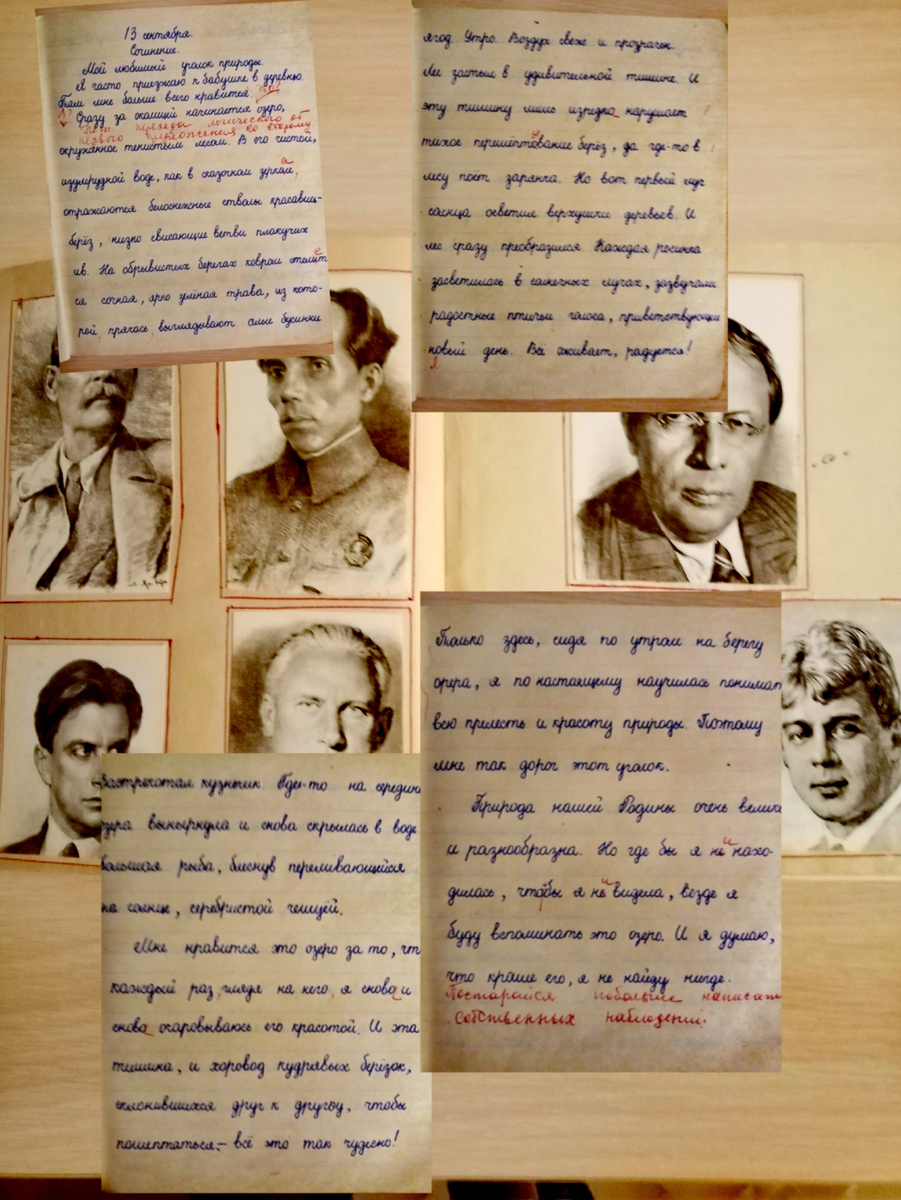 13 сентября.
Сочинение.
Мой любимый уголок природы.
Я часто приезжаю к бабушке в деревню.
Там мне больше всего нравится
Сразу за околицей начинается озеро,
Нет перехода логического от
первого предложения ко второму.
окружённое тенистым лесом. В его чистой,
изумрудной воде, как в сказочном зеркале,
отражаются белоснежные стволы красавиц-
берёз, низко свисающие ветви плакучих
ив. На обрывистых берегах ковром стелит
ся сочная, ярко зелёная трава, из кото-
рой, прячась, выглядывают алые бусинки
ягод. Утро. Воздух свеж и прозрачен.
Лес застыл в удивительной тишине. И
эту тишину лишь изредка нарушает
тихое перешёптывание берёз, да где-то в
лесу поёт зарянка. Но вот первый луч
солнца осветил верхушки деревьев. И
лес сразу преобразился. Каждая росинка
засветилась в солнечных лучах, зазвучали
радостные птичьи голоса, приветствующие
новый день. Всё оживает, радуется!
Застрекотал кузнечик. Где-то на середине
озера вынырнула и снова скрылась в воде
большая рыба, блеснув переливающейся
на солнце, серебристой чешуёй.
Мне нравится это озеро за то, что
каждый раз, глядя на него, я снова и
снова очаровываюсь его красотой. И эта
тишина, и хоровод кудрявых берёзок,
склонившихся друг к другоу, чтобы
пошептаться,– всё это так чудесно!
Только здесь, сидя по утрам на берегу
озера, я по настоящему научилась понимат
всю прелесть и красоту природы. Поэтому
мне так дорог этот уголок.
Природа нашей Родины очень велика
и разнообразна. Но где бы я не нахо-
дилась, чтобы я не видела, везде я
буду вспоминать это озеро. И я думаю,
что краше его, я не найду нигде.
Постарайся побольше написат
собственных наблюдений.